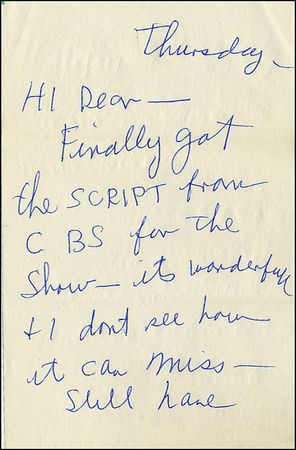 Thursday —
HI Dear —
Finally got
the SCRIPT from
C BS for the
Show — its wonderfull
+ I dont see how
it can miss —
Still have